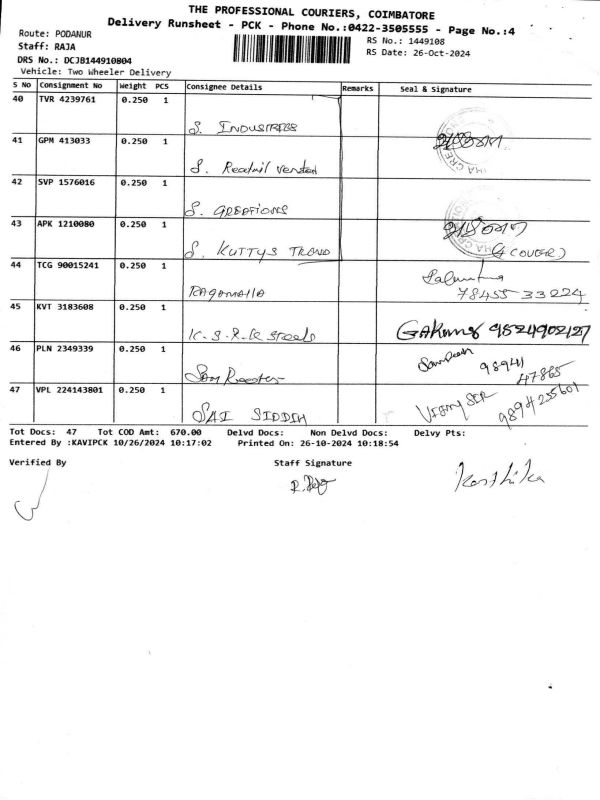 THE PROFESSIONAL COURIERS, COIMBATORE
Delivery Runsheet - PCK - Phone No.:0422-3505555 - Page No.:4
Route: PODANUR
RS No.: 1449108
Staff: RAJA
RS Date: 26-Oct-2024
DRS No.: DCJB144910804
Vehicle: Two Wheeler Delivery
S No Consignment No Weight PCS Consignee Details Remarks Seal & Signature
40 TVR 4239761 0.250 1
S. INDUSTRIES
41 GPM 413033 0.250 1
S.
42 SVP 1576016 0.250 1
S.
43 APK 1210080 0.250 1
S. KUTTYS TREND (4 COVER)
44 TCG 90015241 0.250 1
78455-33224
45 KVT 3183608 0.250 1
K.S.R.K steels 9524902127
46 PLN 2349339 0.250 1
98941
47865
47 VPL 224143801 0.250 1
SAI SIDDH 9894255601
Tot Docs: 47 Tot COD Amt: 670.00 Delvd Docs: Non Delvd Docs: Delvy Pts:
Entered By :KAVIPCK 10/26/2024 10:17:02 Printed On: 26-10-2024 10:18:54
Verified By Staff Signature
Karthika